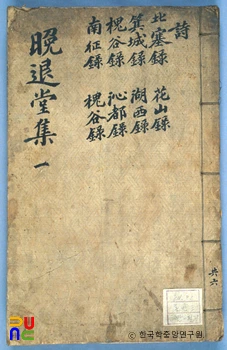 詩
北塞錄 花山錄
箕城錄 湖西錄
槐谷錄 沁都錄
南征錄 槐谷錄
晚退堂集 一
共六
ⓒ 한국학중앙연구원